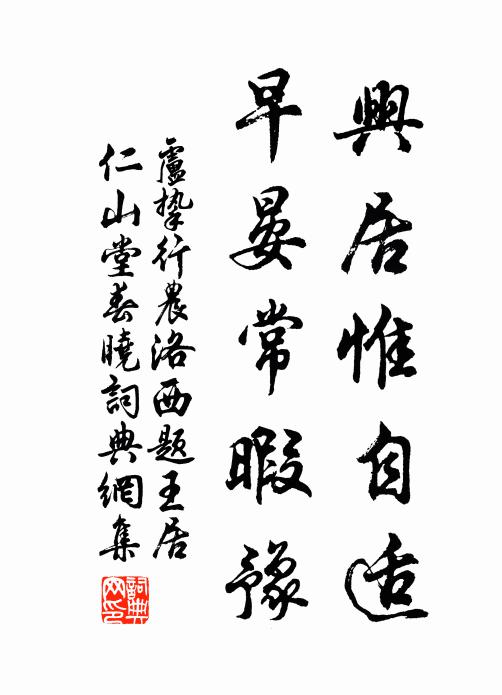 興居惟自適
早晏常暇豫
盧摯行農洛西題王居
仁山堂春曉詞典網集
詞典网印